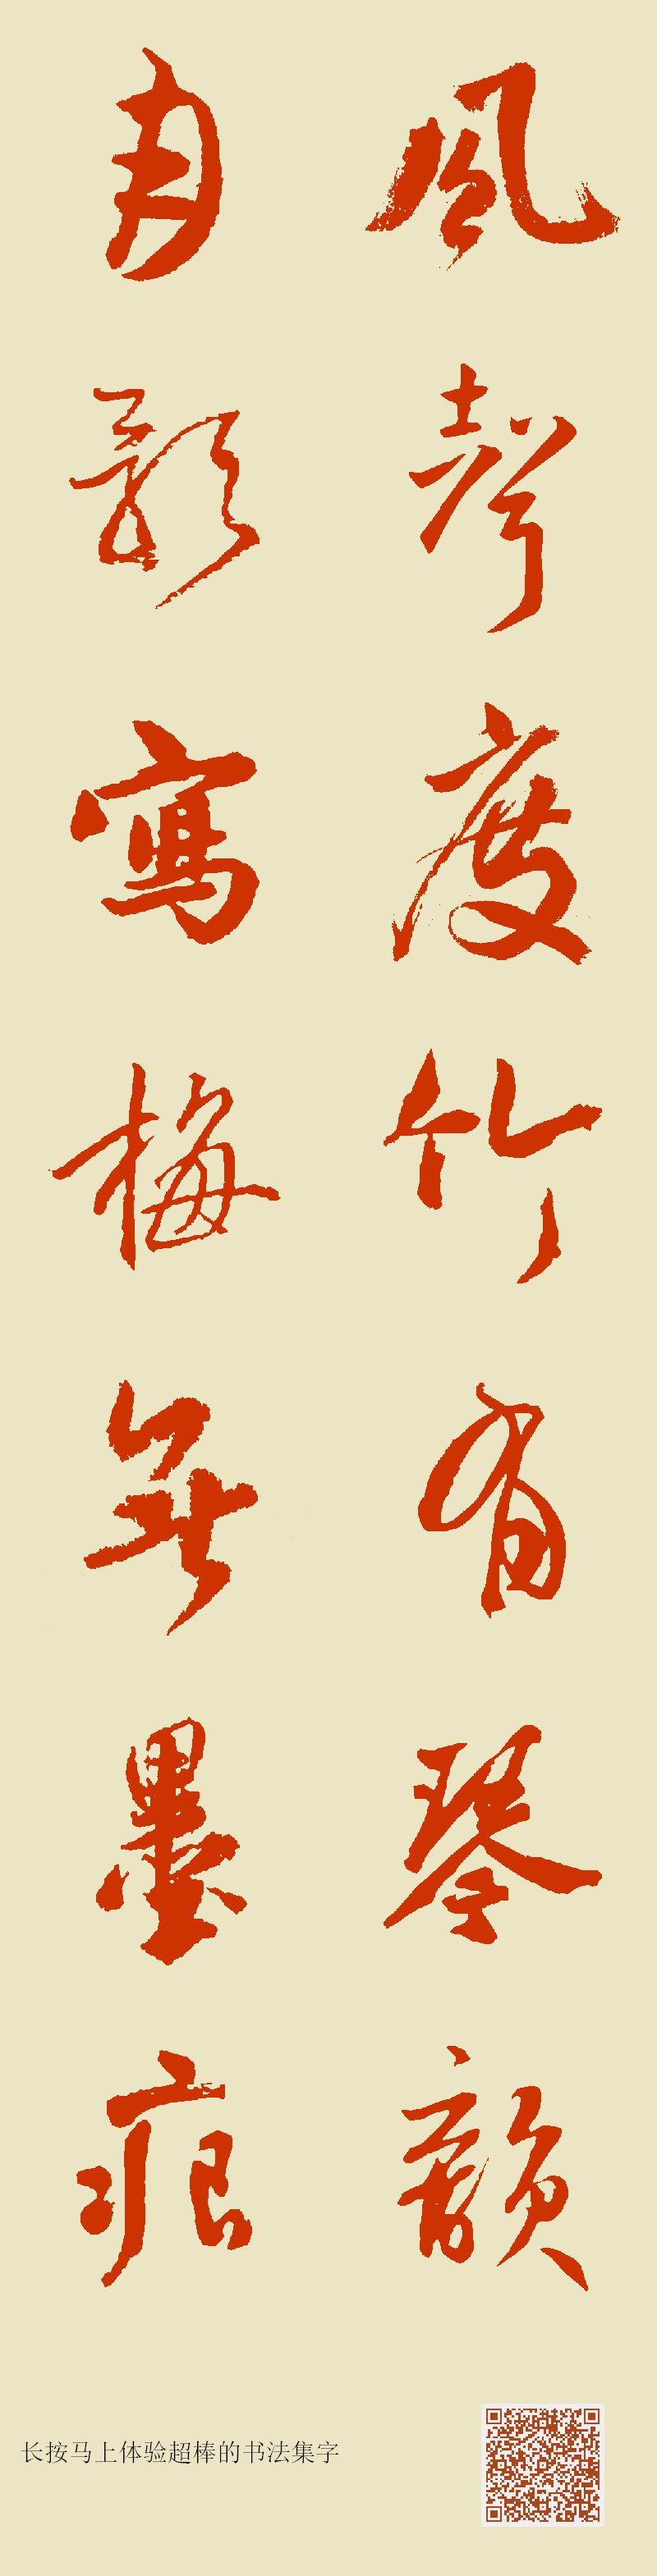 風聲度竹有琴韻
月影寫梅無墨痕
长按马上体验超棒的书法集字